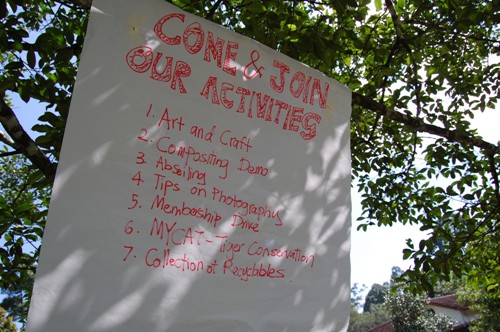 COME & JOIN
OUR ACTIVITIES
1. Art and Craft
2. Compositing Demo
3. Abseiling
4 Tips on Photography
5. Membeship Drive
6. MYCAT - Tiger Conservation
7. Collection of Recyclables